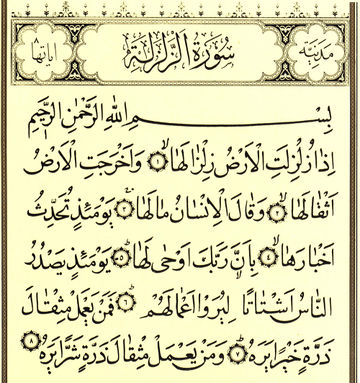 مدنية سورة الزلزلة اياتها ٨
بِسْمِ اللهِ الرَّحْمٰنِ الرَّحِيمِ
اِذَا زُلْزِلَتِ الْاَرْضُ زِلْزَالَهَاۙ ﴿١﴾ وَاَخْرَجَتِ الْاَرْضُ
اَثْقَالَهَاۙ ﴿٢﴾ وَقَالَ الْاِنْسَانُ مَالَهَاۚ ﴿٣﴾ يَوْمَئِذٍ تُحَدِّثُ
اَخْبَارَهَاۙ ﴿٤﴾ بِاَنَّ رَبَّكَ اَوْحٰى لَهَاۜ ﴿٥﴾ يَوْمَئِذٍ يَصْدُرُ
النَّاسُ اَشْتَاتًا لِيُرَوْا اَعْمَالَهُمْۜ ﴿٦﴾ فَمَنْ يَعْمَلْ مِثْقَالَ
ذَرَّةٍ خَيْرًا يَرَهُۜ ﴿٧﴾ وَمَنْ يَعْمَلْ مِثْقَالَ ذَرَّةٍ شَرًّا يَرَهُ ﴿٨﴾